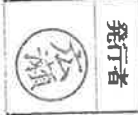 発行者
広瀬